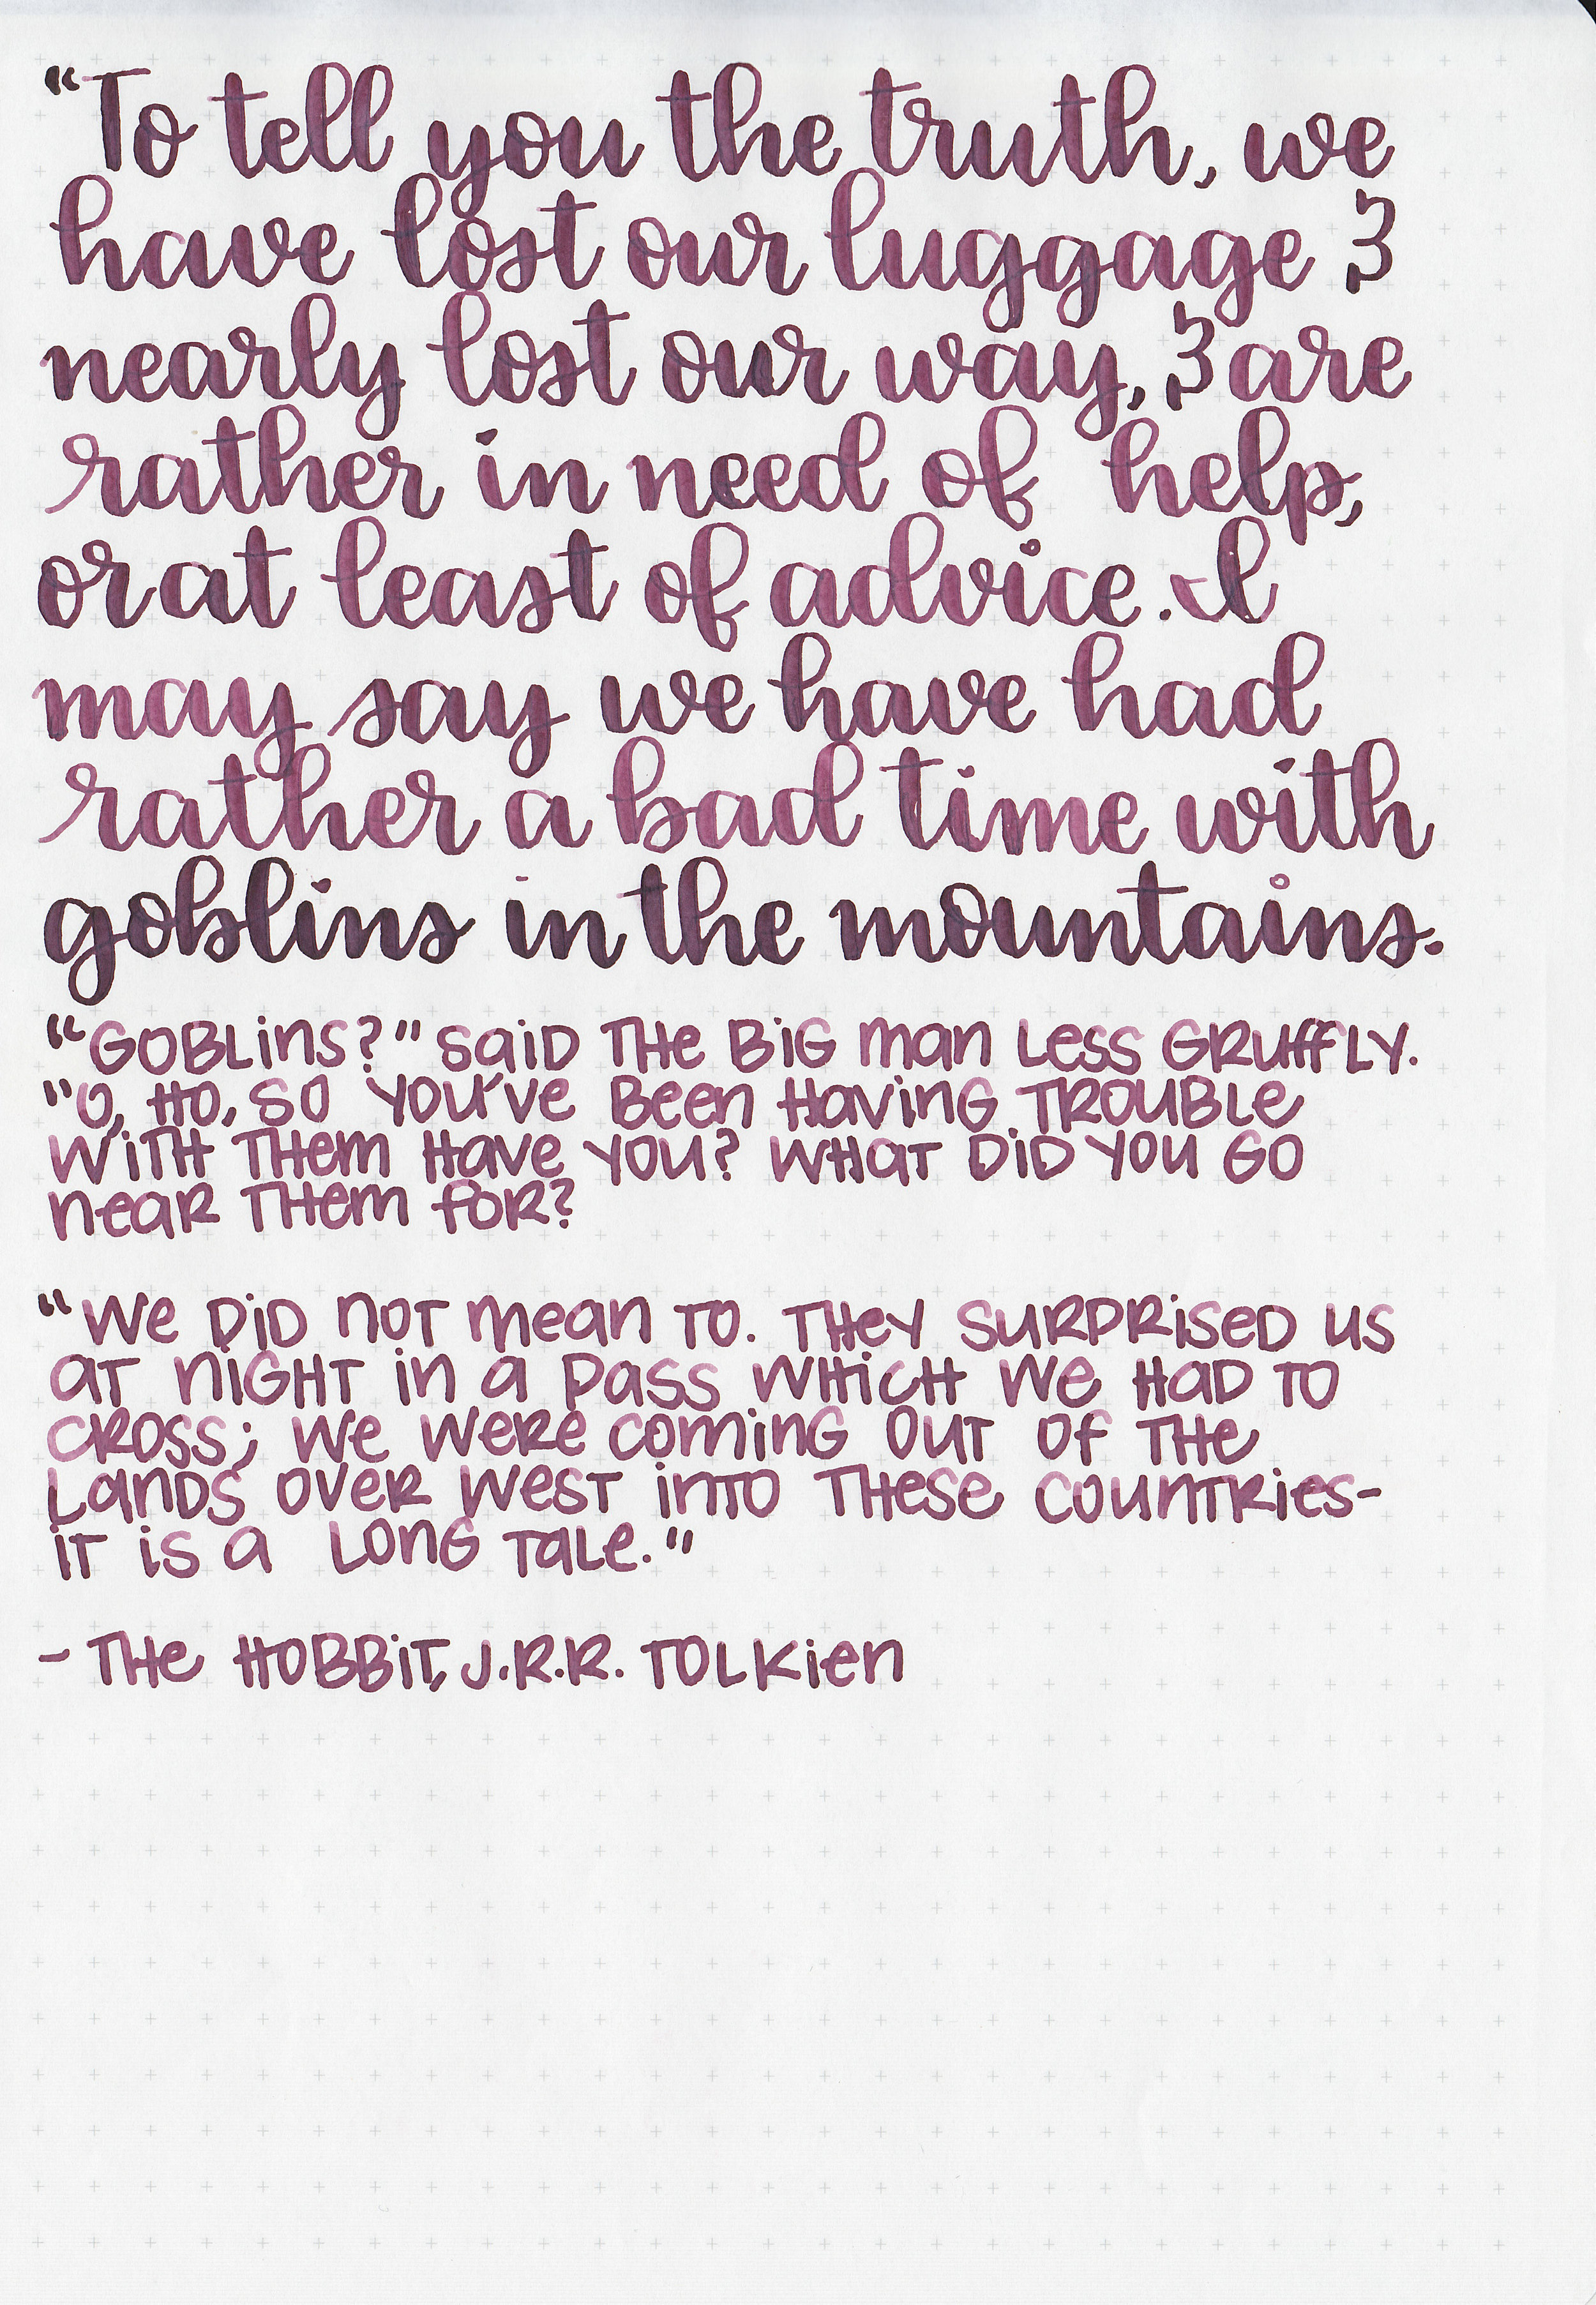 “To tell you the truth, we
have lost our luggage &
nearly lost our way, & are
rather in need of help,
or at least of advice. I
may say we have had
rather a bad time with
goblins in the mountains.
“GOBLins?” said THe BiG man Less GRuffLy.
"O, HO, SO YOU'Ve Been HavinG TROUBLe
WiTH THem Have YOU? WHaT DiD YOU GO
near THem for?
“We DiD noT mean TO. THey SURPRiseD US
aT niGHT in a pass WHicH We HaD TO
CROSS; We Were cominG OUT OF THe
Lands over west into THese COUnTRies-
iT is a LonG TaLe."
- THe HOBBiT, J.R.R. TOLKien